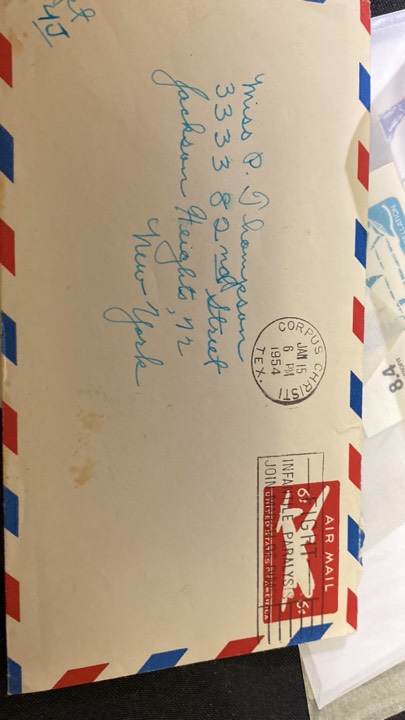 4J
Miss P. Thompson
3333 82nd Street
Jackson Heights, 72
New York
CORPUS CHRISTI
JAN 15
6 PM
1954
TEX.
FIGHT
INFANTILE PARALYSIS
JOIN
AIR MAIL
6¢ 6¢
UNITED STATES OF AMERICA
8.4